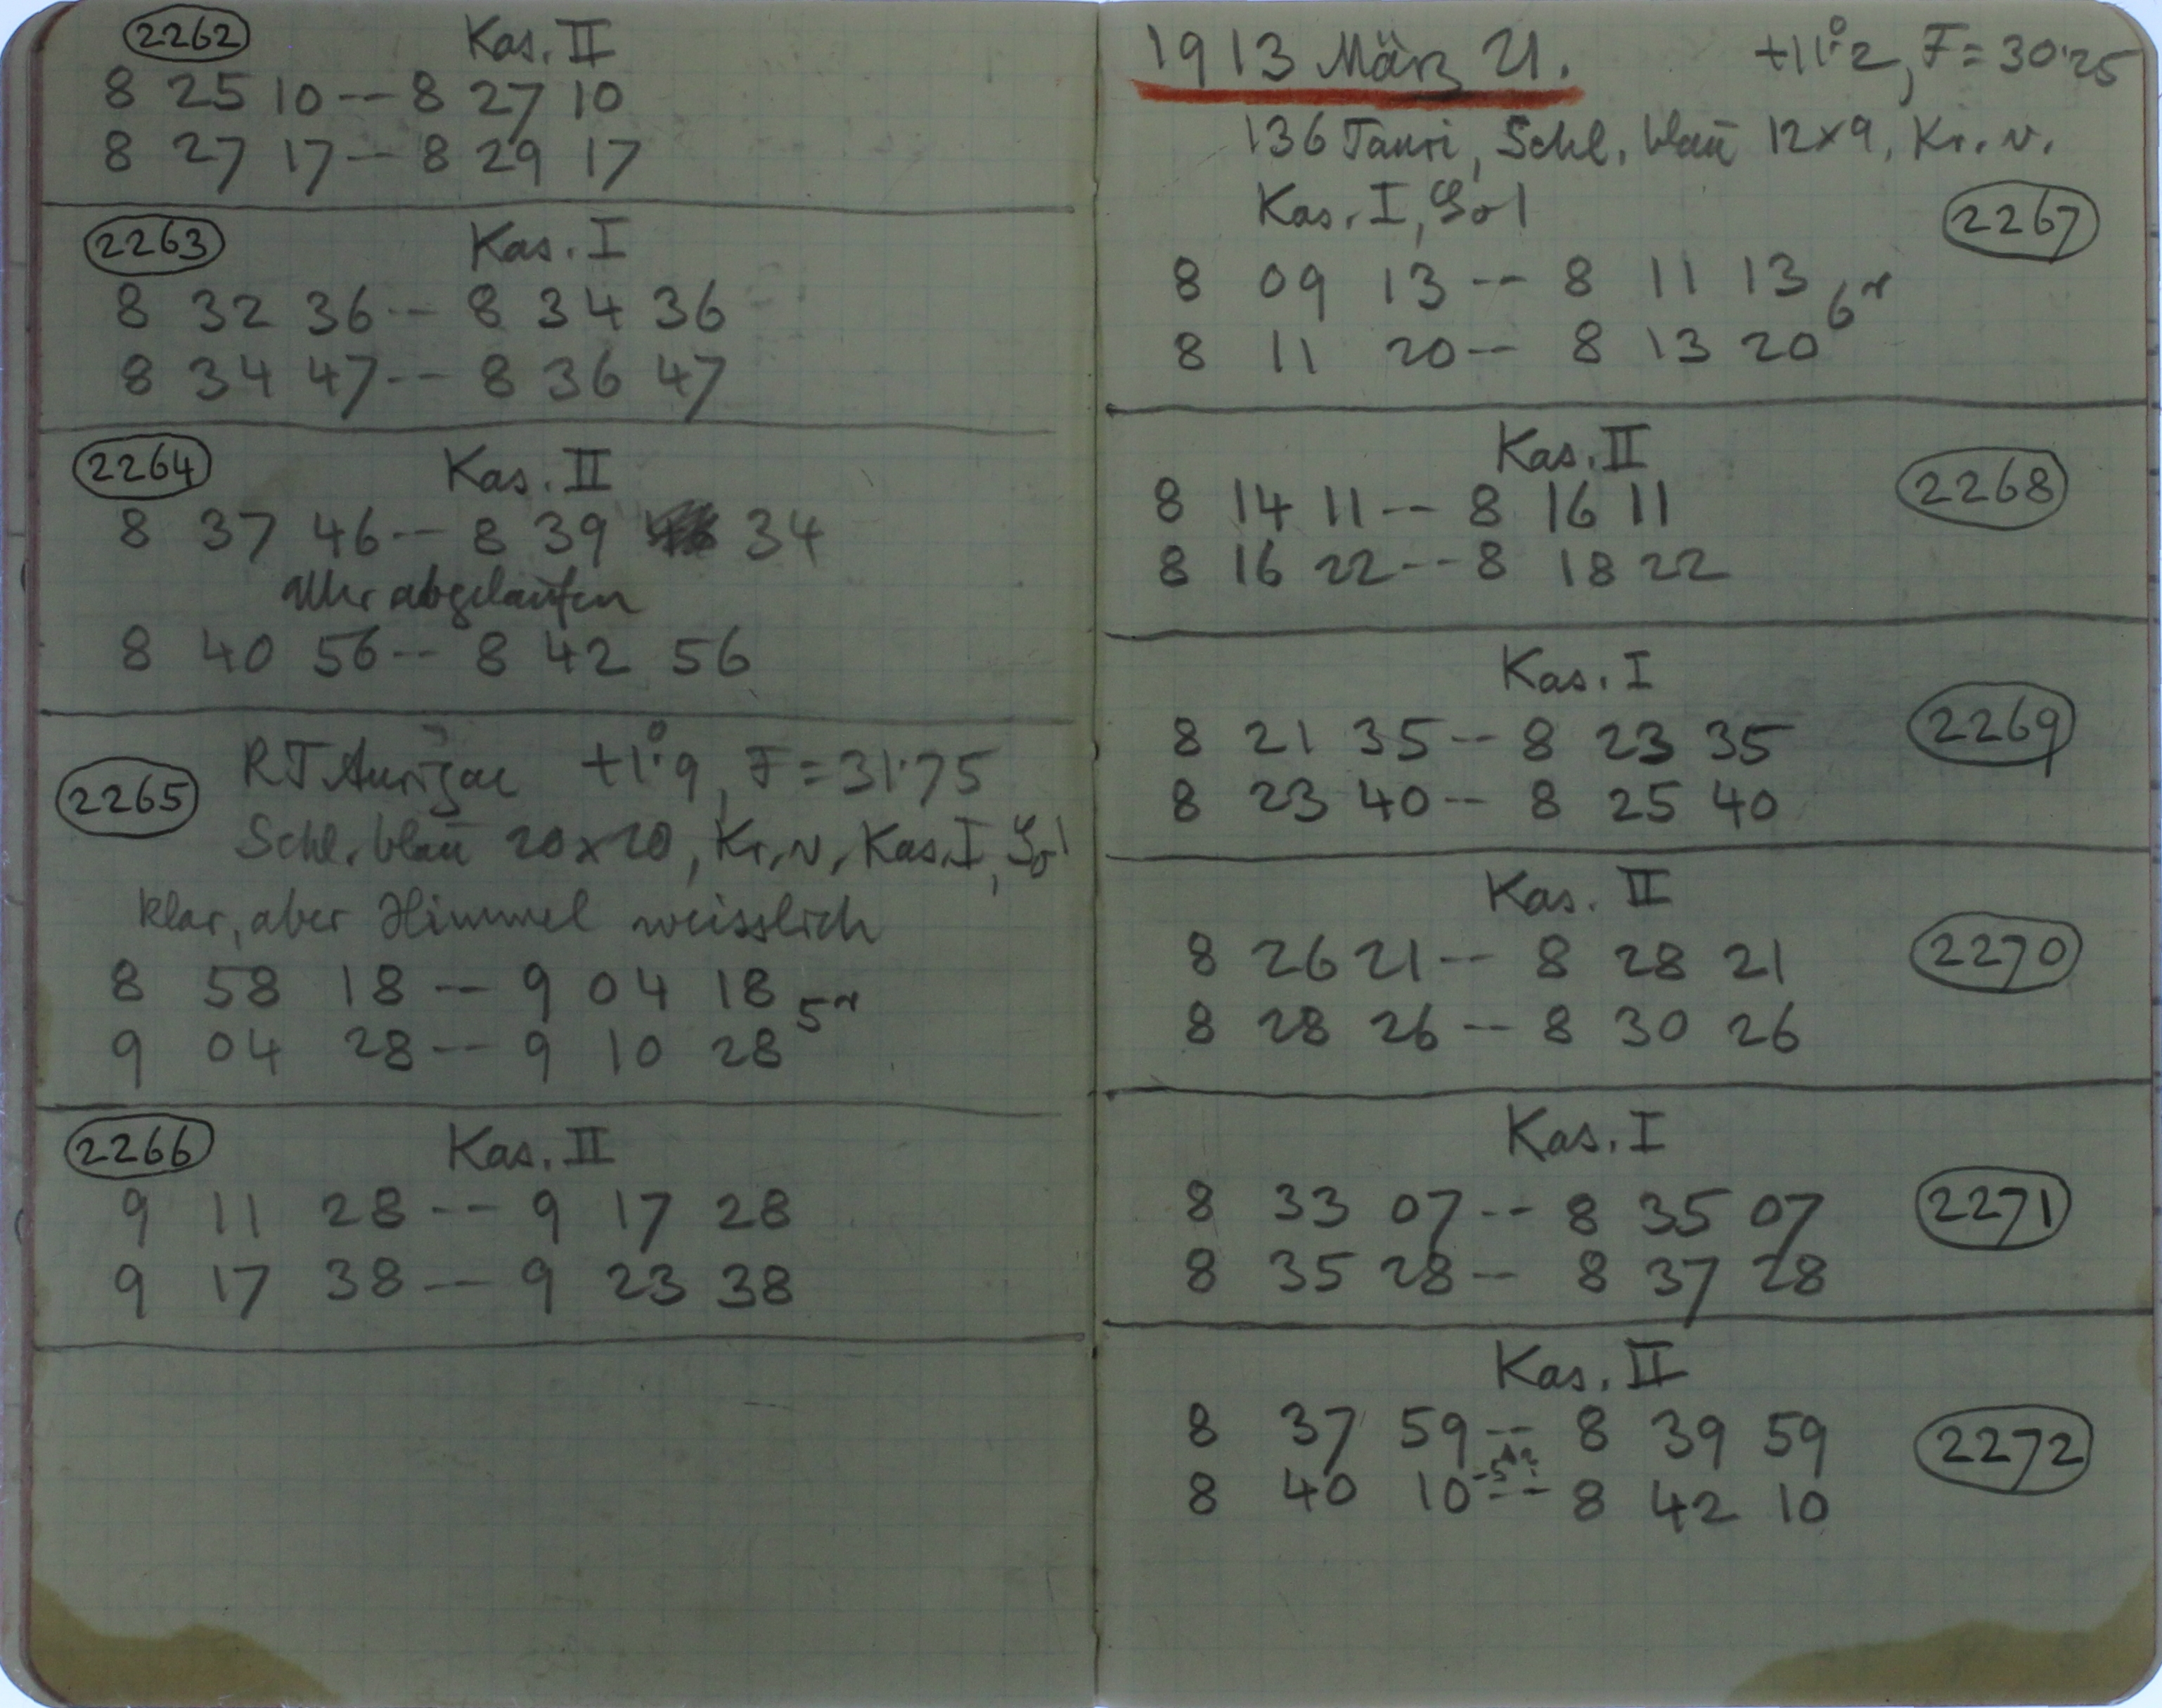 2262 Kas. II
8 25 10 -- 8 27 10
8 27 17 -- 8 29 17
2263 Kas. I
8 32 36 -- 8 34 36
8 34 47 -- 8 36 47
2264 Kas. II
8 37 46 -- 8 39 34
Uhr abgelaufen
8 40 56 -- 8 42 56
2265 RT Aurigae +1°.9, F = 31.75
Schl. blau 20 x 20, Kr. v. Kas. I,
klar, aber Himmel weisslich
8 58 18 -- 9 04 18
9 04 28 -- 9 10 28
2266 Kas. II
9 11 28 -- 9 17 28
9 17 38 -- 9 23 38
1913 März 21. +11°.2, F = 30.25
136 Tauri, Schl. blau 12x9, Kr. v.
Kas. I, 2267
8 09 13 -- 8 11 13
8 11 20 -- 8 13 20
Kas. II
8 14 11 -- 8 16 11 2268
8 16 22 -- 8 18 22
Kas. I
8 21 35 -- 8 23 35 2269
8 23 40 -- 8 25 40
Kas. II
8 26 21 -- 8 28 21 2270
8 28 26 -- 8 30 26
Kas. I
8 33 07 -- 8 35 07 2271
8 35 28 -- 8 37 28
Kas. II
8 37 59 -- 8 39 59 2272
8 40 10 -- 8 42 10